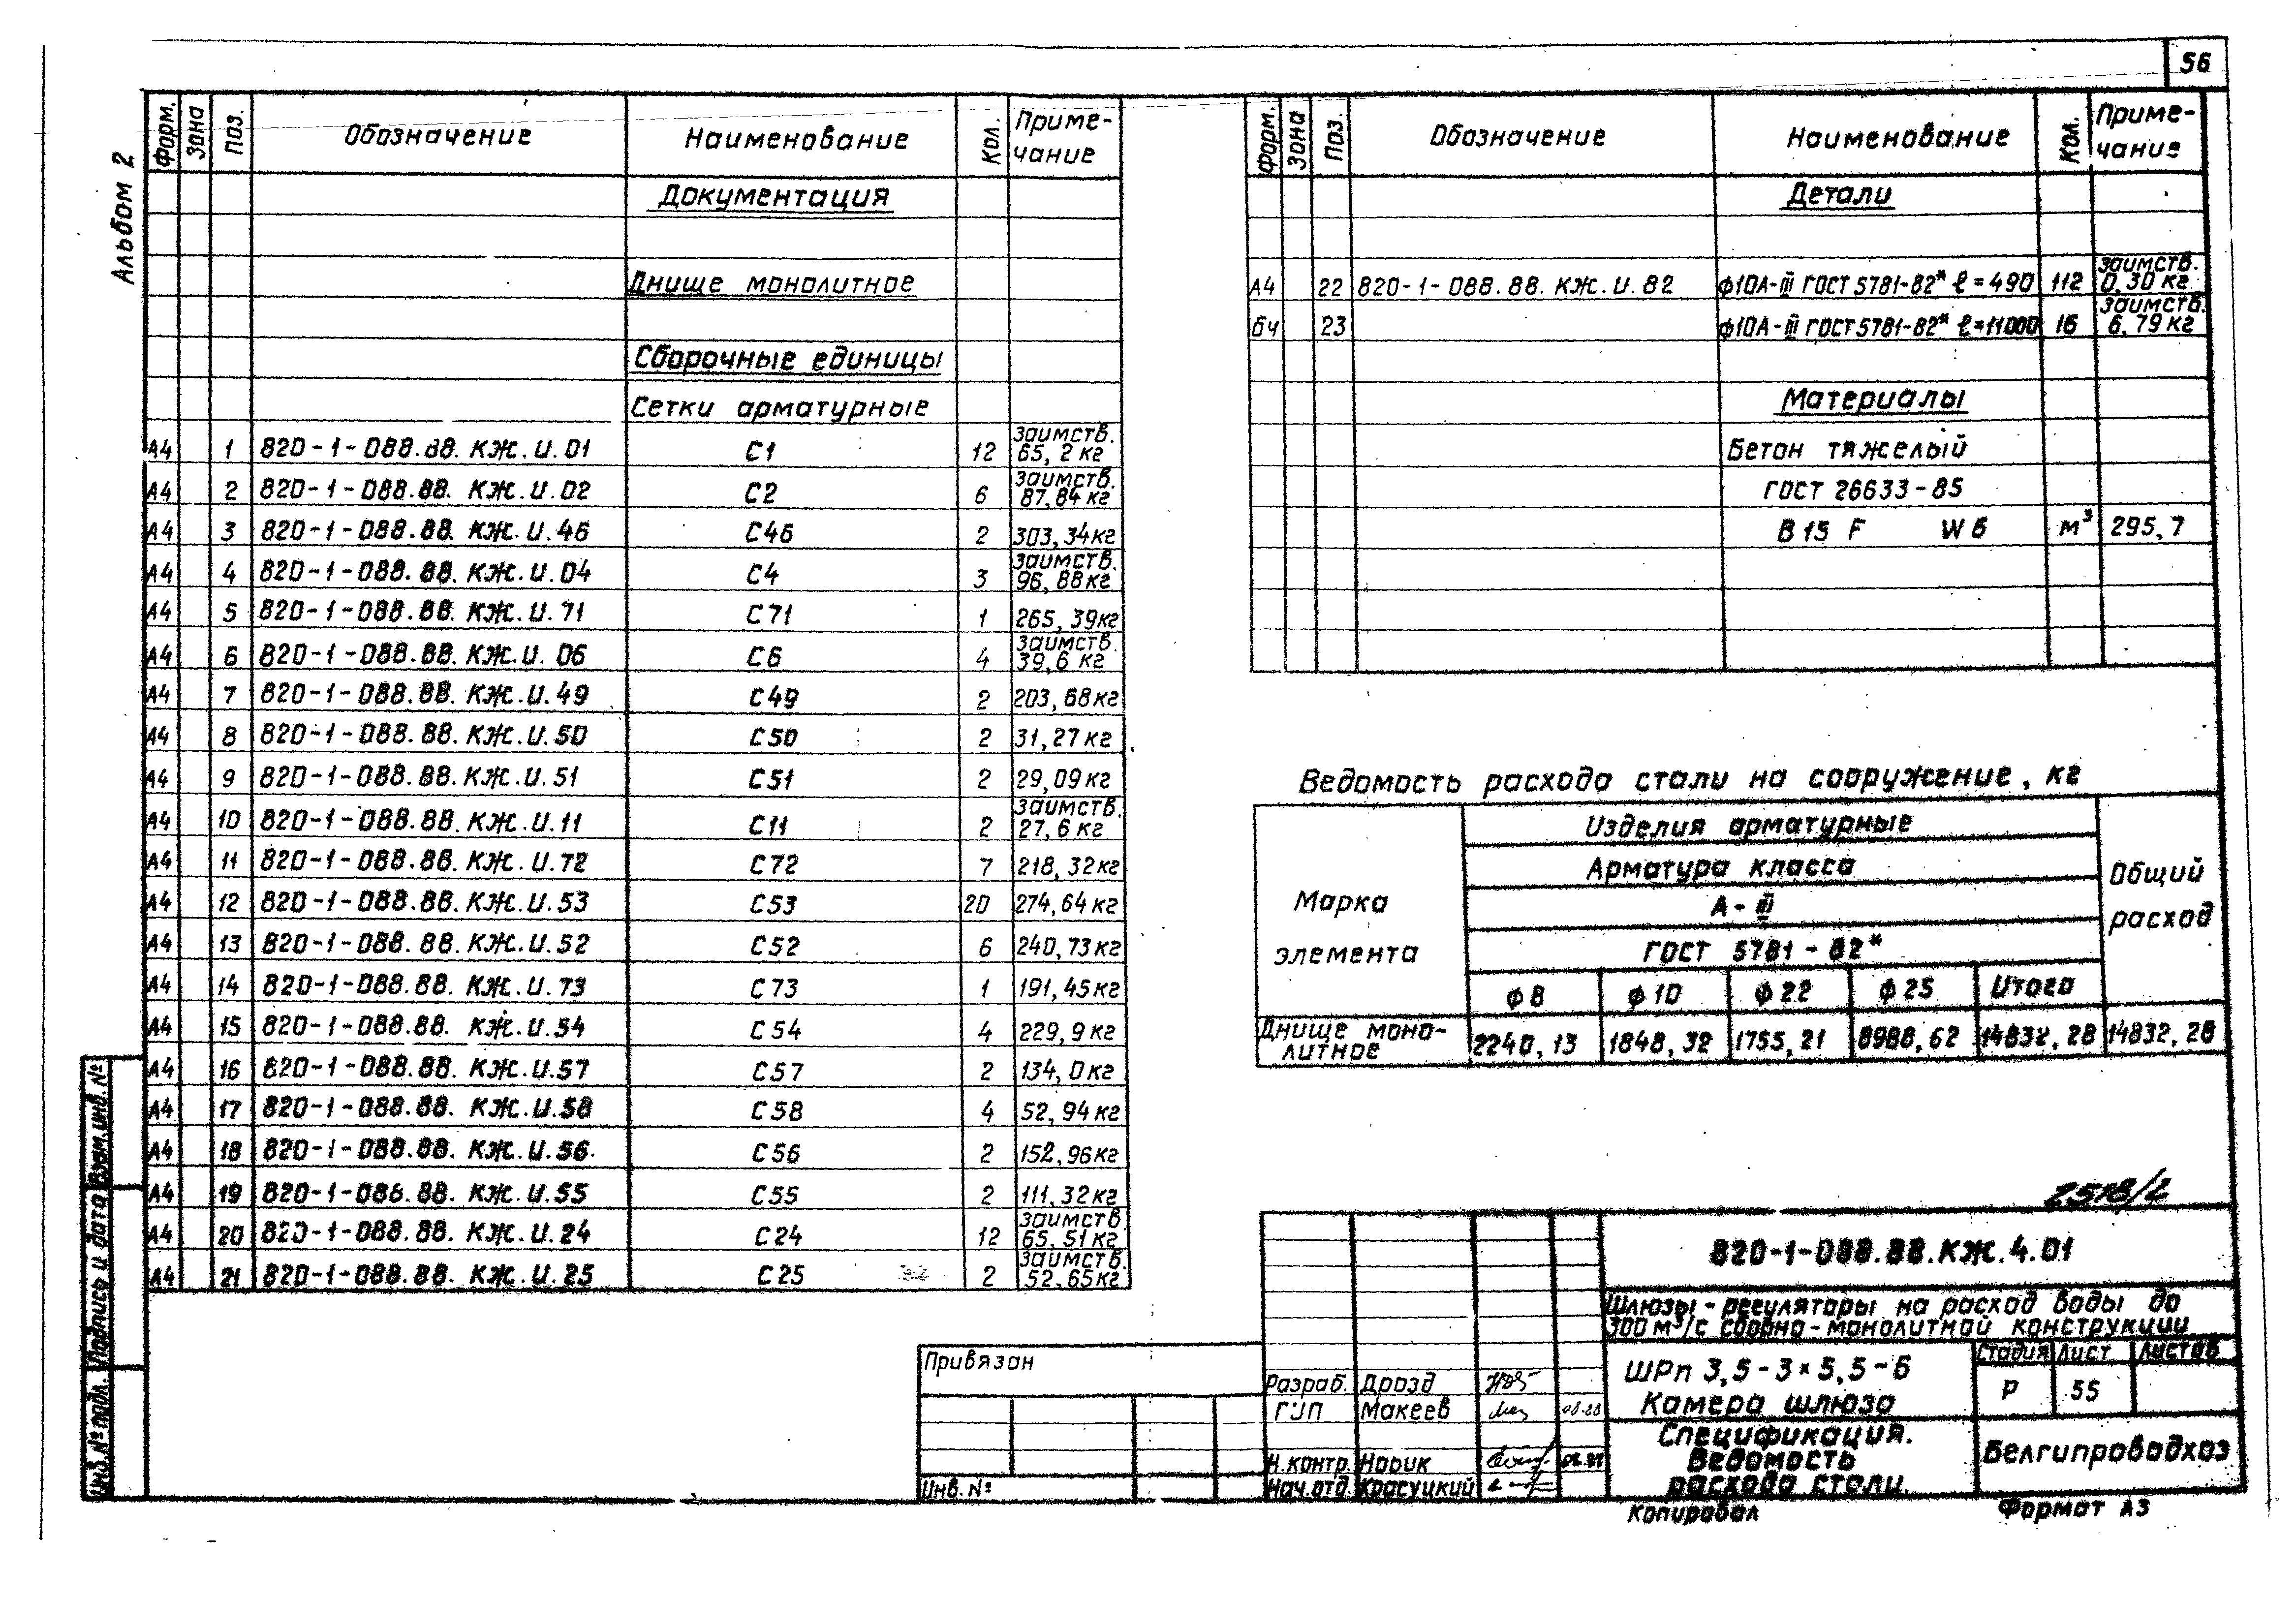 56
Альбом 2
Форм. Зона Поз. Обозначение Наименование Кол. Приме-чание
Документация
Днище монолитное
Сборочные единицы
Сетки арматурные
А4 1 820-1-088.88.КЖ.И.01 С1 12 заимств. 65,2 кг
А4 2 820-1-088.88.КЖ.И.02 С2 6 заимств. 87,84 кг
А4 3 820-1-088.88.КЖ.И.46 С46 2 303,34 кг
А4 4 820-1-088.88.КЖ.И.04 С4 3 заимств. 96,88 кг
А4 5 820-1-088.88.КЖ.И.71 С71 1 265,39 кг
А4 6 820-1-088.88.КЖ.И.06 С6 4 заимств. 39,6 кг
А4 7 820-1-088.88.КЖ.И.49 С49 2 203,68 кг
А4 8 820-1-088.88.КЖ.И.50 С50 2 31,27 кг
А4 9 820-1-088.88.КЖ.И.51 С51 2 29,09 кг
А4 10 820-1-088.88.КЖ.И.11 С11 2 заимств. 27,6 кг
А4 11 820-1-088.88.КЖ.И.72 С72 7 218,32 кг
А4 12 820-1-088.88.КЖ.И.53 С53 20 274,64 кг
А4 13 820-1-088.88.КЖ.И.52 С52 6 240,73 кг
А4 14 820-1-088.88.КЖ.И.73 С73 1 191,45 кг
А4 15 820-1-088.88.КЖ.И.54 С54 4 229,9 кг
А4 16 820-1-088.88.КЖ.И.57 С57 2 134,0 кг
А4 17 820-1-088.88.КЖ.И.58 С58 4 52,94 кг
А4 18 820-1-088.88.КЖ.И.56. С56 2 152,96 кг
А4 19 820-1-088.88.КЖ.И.55 С55 2 111,32 кг
А4 20 820-1-088.88.КЖ.И.24 С24 12 заимств. 65,51 кг
А4 21 820-1-088.88.КЖ.И.25 С25 2 заимств. 52,65 кг
Форм. Зона Поз. Обозначение Наименование Кол. Приме-чание
Детали
А4 22 820-1-088.88.КЖ.И.82 ф10А-III ГОСТ 5781-82* ℓ=490 112 заимств. 0,30 кг
бч 23 ф10А-III ГОСТ 5781-82* ℓ=11000 16 заимств. 6,79 кг
Материалы
Бетон тяжелый
ГОСТ 26633-85
В15 F W6 м³ 295,7
Ведомость расхода стали на сооружение, кг
Марка элемента
Изделия арматурные
Арматура класса
А-III
ГОСТ 5781-82*
ф8 ф10 ф22 ф25 Итого
Общий расход
Днище моно-литное 2240,13 1848,32 1755,21 8988,62 14832,28 14832,28
2578/2
820-1-088.88.КЖ.4.01
Шлюзы-регуляторы на расход воды до
300 м³/с сборно-монолитной конструкции
ШРп 3,5-3×5,5-6
Камера шлюза
Стадия Лист Листов
Р 55
Спецификация.
Ведомость
расхода стали.
Белгипроводхоз
Разраб. Дрозд
ГИП Макеев 08.88
Н.контр. Новик 08.88
Нач.отд. Красуцкий
Привязан
Инв. №
Взам.инв.№
Подпись и дата
Инв.№ подл.
Копировал
Формат А3